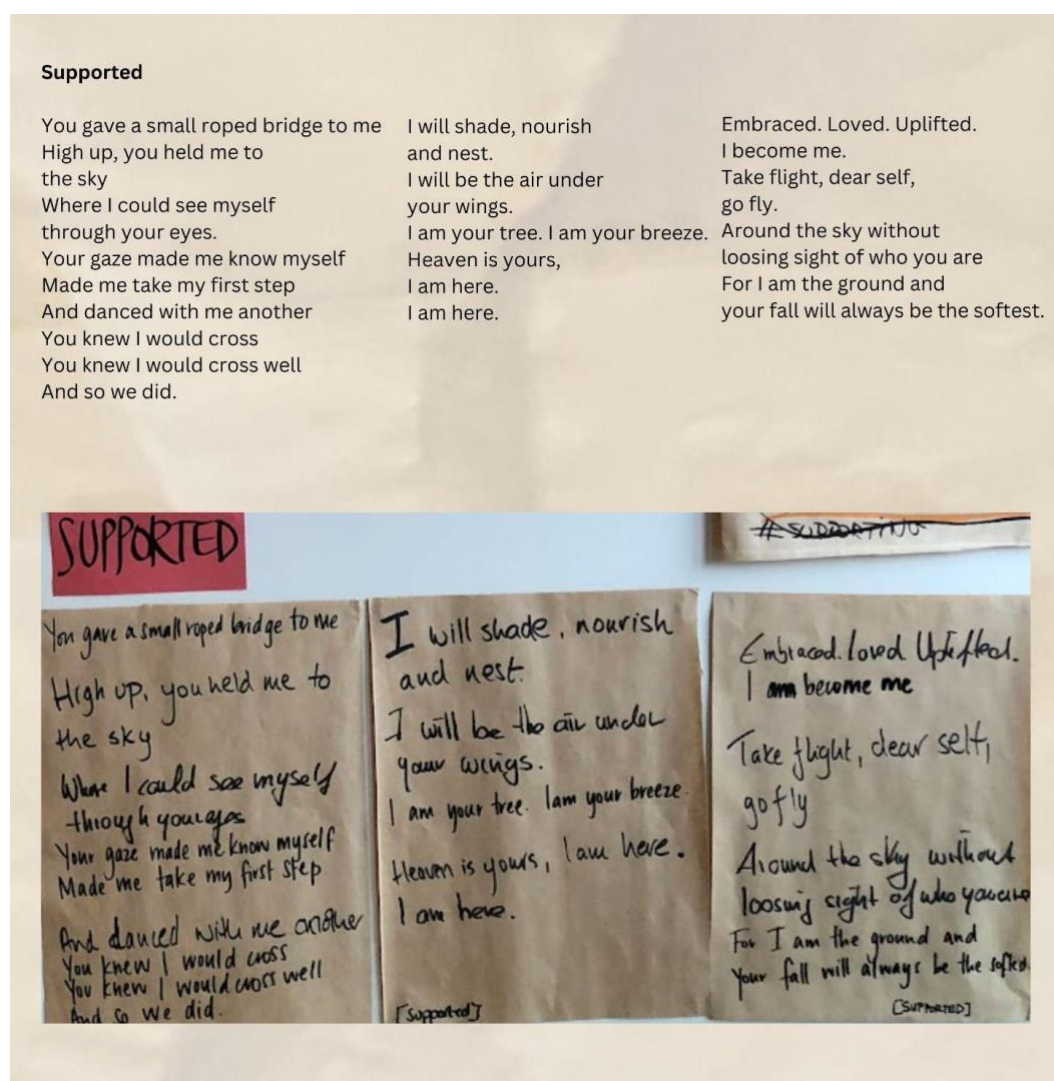 Supported
You gave a small roped bridge to me
High up, you held me to
the sky
Where I could see myself
through your eyes.
Your gaze made me know myself
Made me take my first step
And danced with me another
You knew I would cross
You knew I would cross well
And so we did.
I will shade, nourish
and nest.
I will be the air under
your wings.
I am your tree. I am your breeze.
Heaven is yours,
I am here.
I am here.
Embraced. Loved. Uplifted.
I become me.
Take flight, dear self,
go fly.
Around the sky without
loosing sight of who you are
For I am the ground and
your fall will always be the softest.
SUPPORTED
You gave a small roped bridge to me
High up, you held me to
the sky
Where I could see myself
through your eyes
Your gaze made me know myself
Made me take my first step
And danced with me another
You knew I would cross
You knew I would cross well
And so we did.
I will shade, nourish
and nest.
I will be the air under
your wings.
I am your tree. I am your breeze.
Heaven is yours, I am here.
I am here.
[Supported]
#SUPPORTING
Embraced. Loved Uplifted.
I am become me
Take flight, dear self,
go fly
Around the sky without
loosing sight of who you are
For I am the ground and
Your fall will always be the softest
[SUPPORTED]